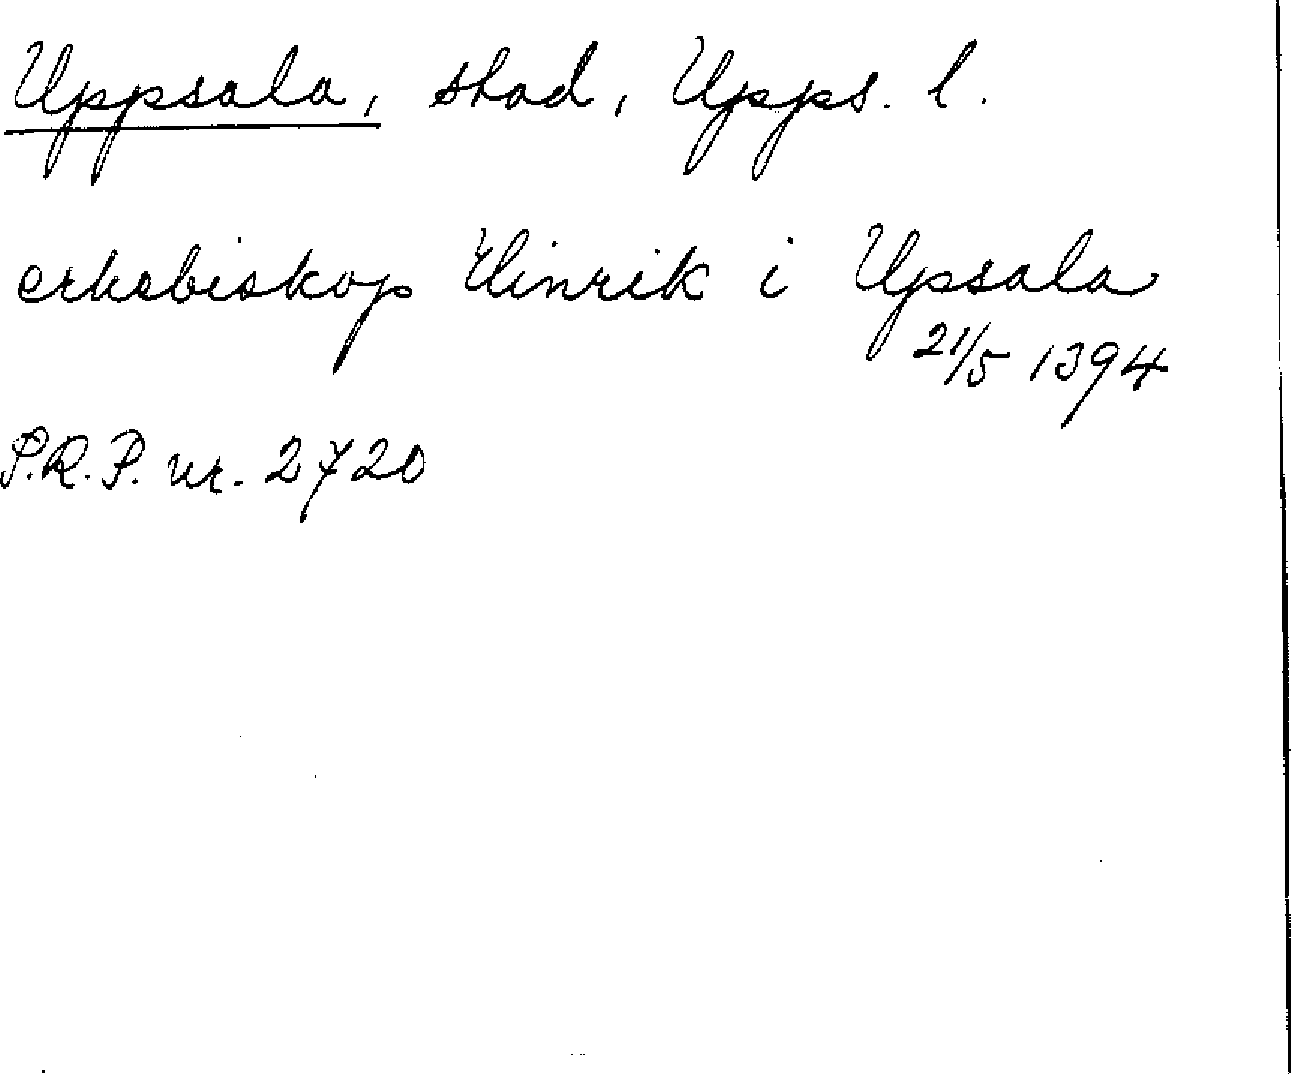 Uppsala, stad, Upps. l.
erkebiskop Hinrik i Upsala
21/5 1394
P.R.P. nr. 2720